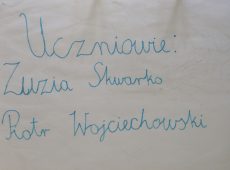 Uczniowie:
Zuzia Skwarko
Piotr Wojciechowski